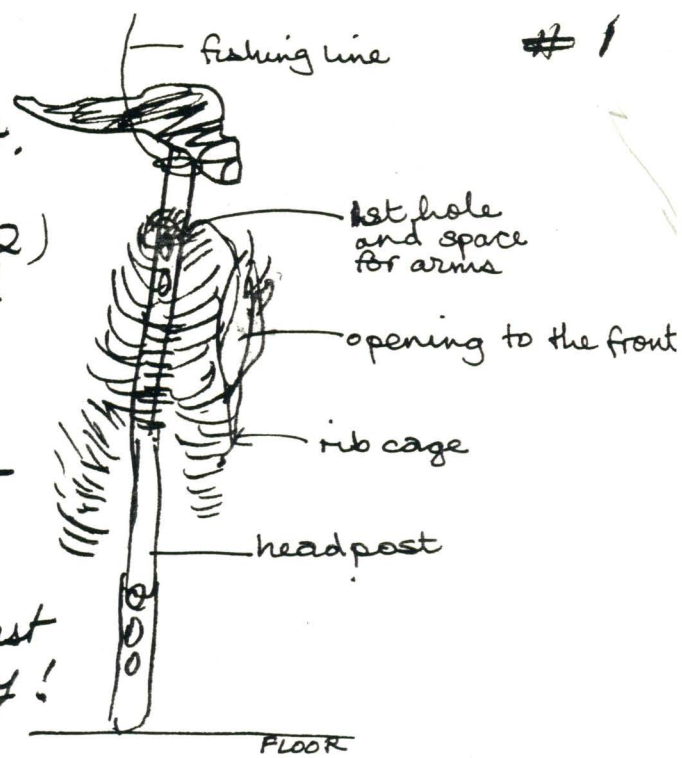 fishing line
# 1
1st hole
and space
for arms
opening to the front
rib cage
headpost
FLOOR